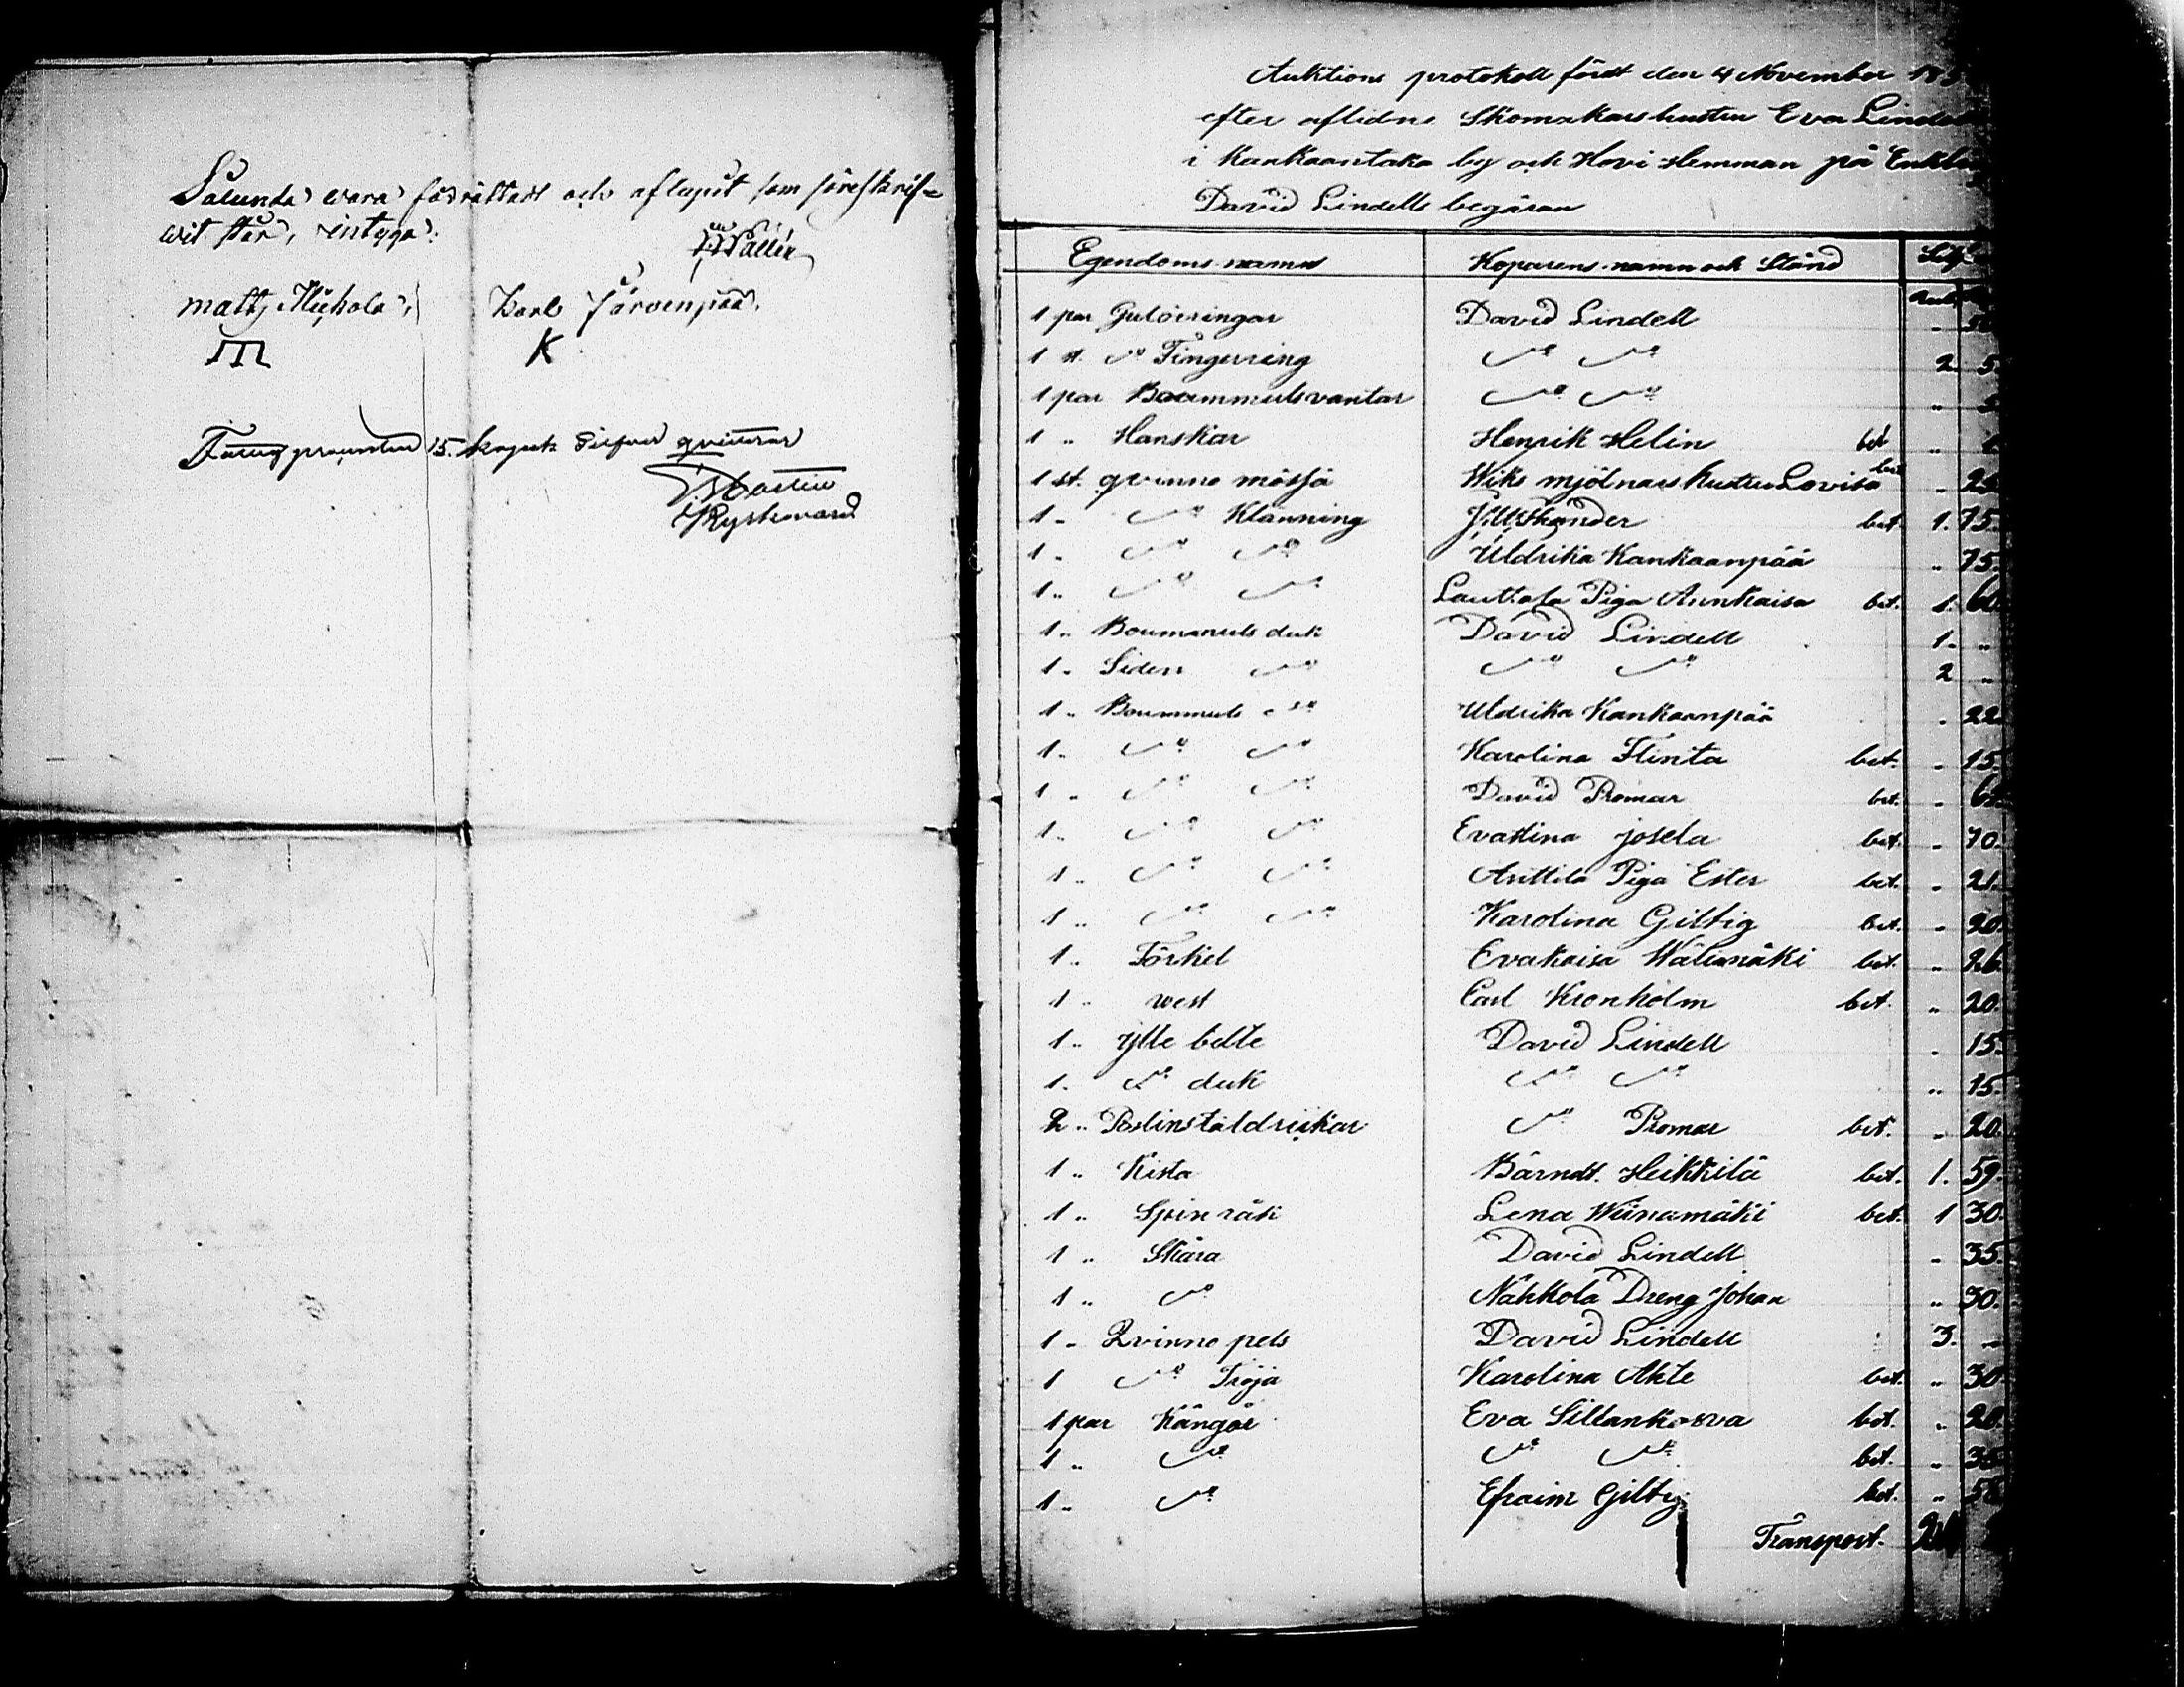 Sålunda vara förrättadt och aflupit som föreskrif-
wit står, intyga:
Wallin
Matts
Karl Järvenpää,
K
15. kopek Silfver qvitterar
Auktions protokoll fördt den 4 November 185
efter aflidne Skomakarehustru Eva Lindell
i Kankaantaka by och Hovi Hemman på Enkling
David Lindells begäran
Egendoms namn Köparens namn och Stånd Silf
1 par Gulöreringar David Lindell
1 st. do Fingerring do do 2 5
1 par Boummulsvantar do do
1 " Hanskar Henrik Helin bet
1 st. qvinno mössa Wiks mjölnars hustru Lovisa bet " 25
1 " do Klänning bet. 1. 75.
1 " do do Uldrika Kankaanpää " 75.
1 " do do Lauttala Piga Annkaisa bet. 1. 60
1 " Boumamuls duk David Lindell 1. "
1 " Siden do do do 2 "
1 " Boummuls do Uldrika Kankaanpää " 22
1 " do do Karolina Flinta bet. " 15.
1 " do do David Promar bet. "
1 " do do Evastina Josela bet. " 70.
1 " do do Anttila Piga Ester bet. " 21.
1 " do do Karolina Giltig bet. " 20
1 " Förkel Evakaisa Wälimäki bet. " 26
1 " west Carl Kronholm bet. " 20.
1 " Ylle belte David Lindell " 15
1 " do duk do do " 15.
2 " Poslinstaldrickar do Promar bet. " 20.
1 " Kista Bärndt. Heikkilä bet. 1. 59.
1 " Spinråk Lena Wiinamäki bet. 1 30.
1 " Skära David Lindell " 35.
1 " do Nähkola Dreng Johan " 30.
1 " Qvinno pels David Lindell 3. "
1 do Tröja Karolina Ahte bet. " 30
1 par Kängor Eva Sillankorva bet. " 20.
1 " do do do bet. " 35
1 " do Efraim Giltig bet. " 58
Transport.